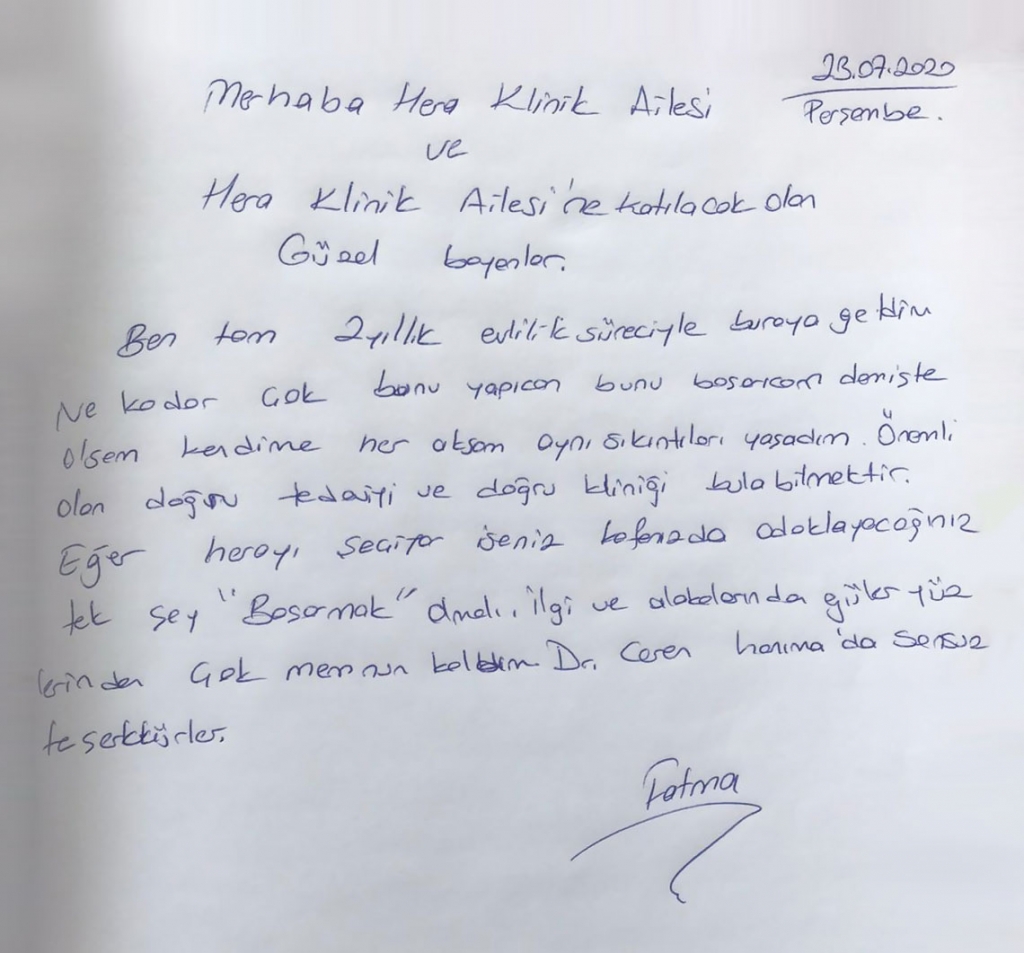 23.07.2020
Perşembe.
Merhaba Hera Klinik Ailesi
ve
Hera Klinik Ailesi'ne katılacak olan
Güzel bayanlar.
Ben tam 2 yıllık evlilik süreciyle buraya geldim
Ne kadar çok bunu yapıcam bunu başarıcam demişte
olsam kendime her akşam aynı sıkıntıları yaşadım. Önemli
olan doğru tedaviyi ve doğru kliniği bulabilmektir.
Eğer herayı seçiyor iseniz kafanızda odaklayacağınız
tek şey "Başarmak" olmalı.. ilgi ve alakalarında güler yüz
lerinden çok memnun kaldım Dr. Ceren hanıma'da sonsuz
teşekkürler.
Fatma